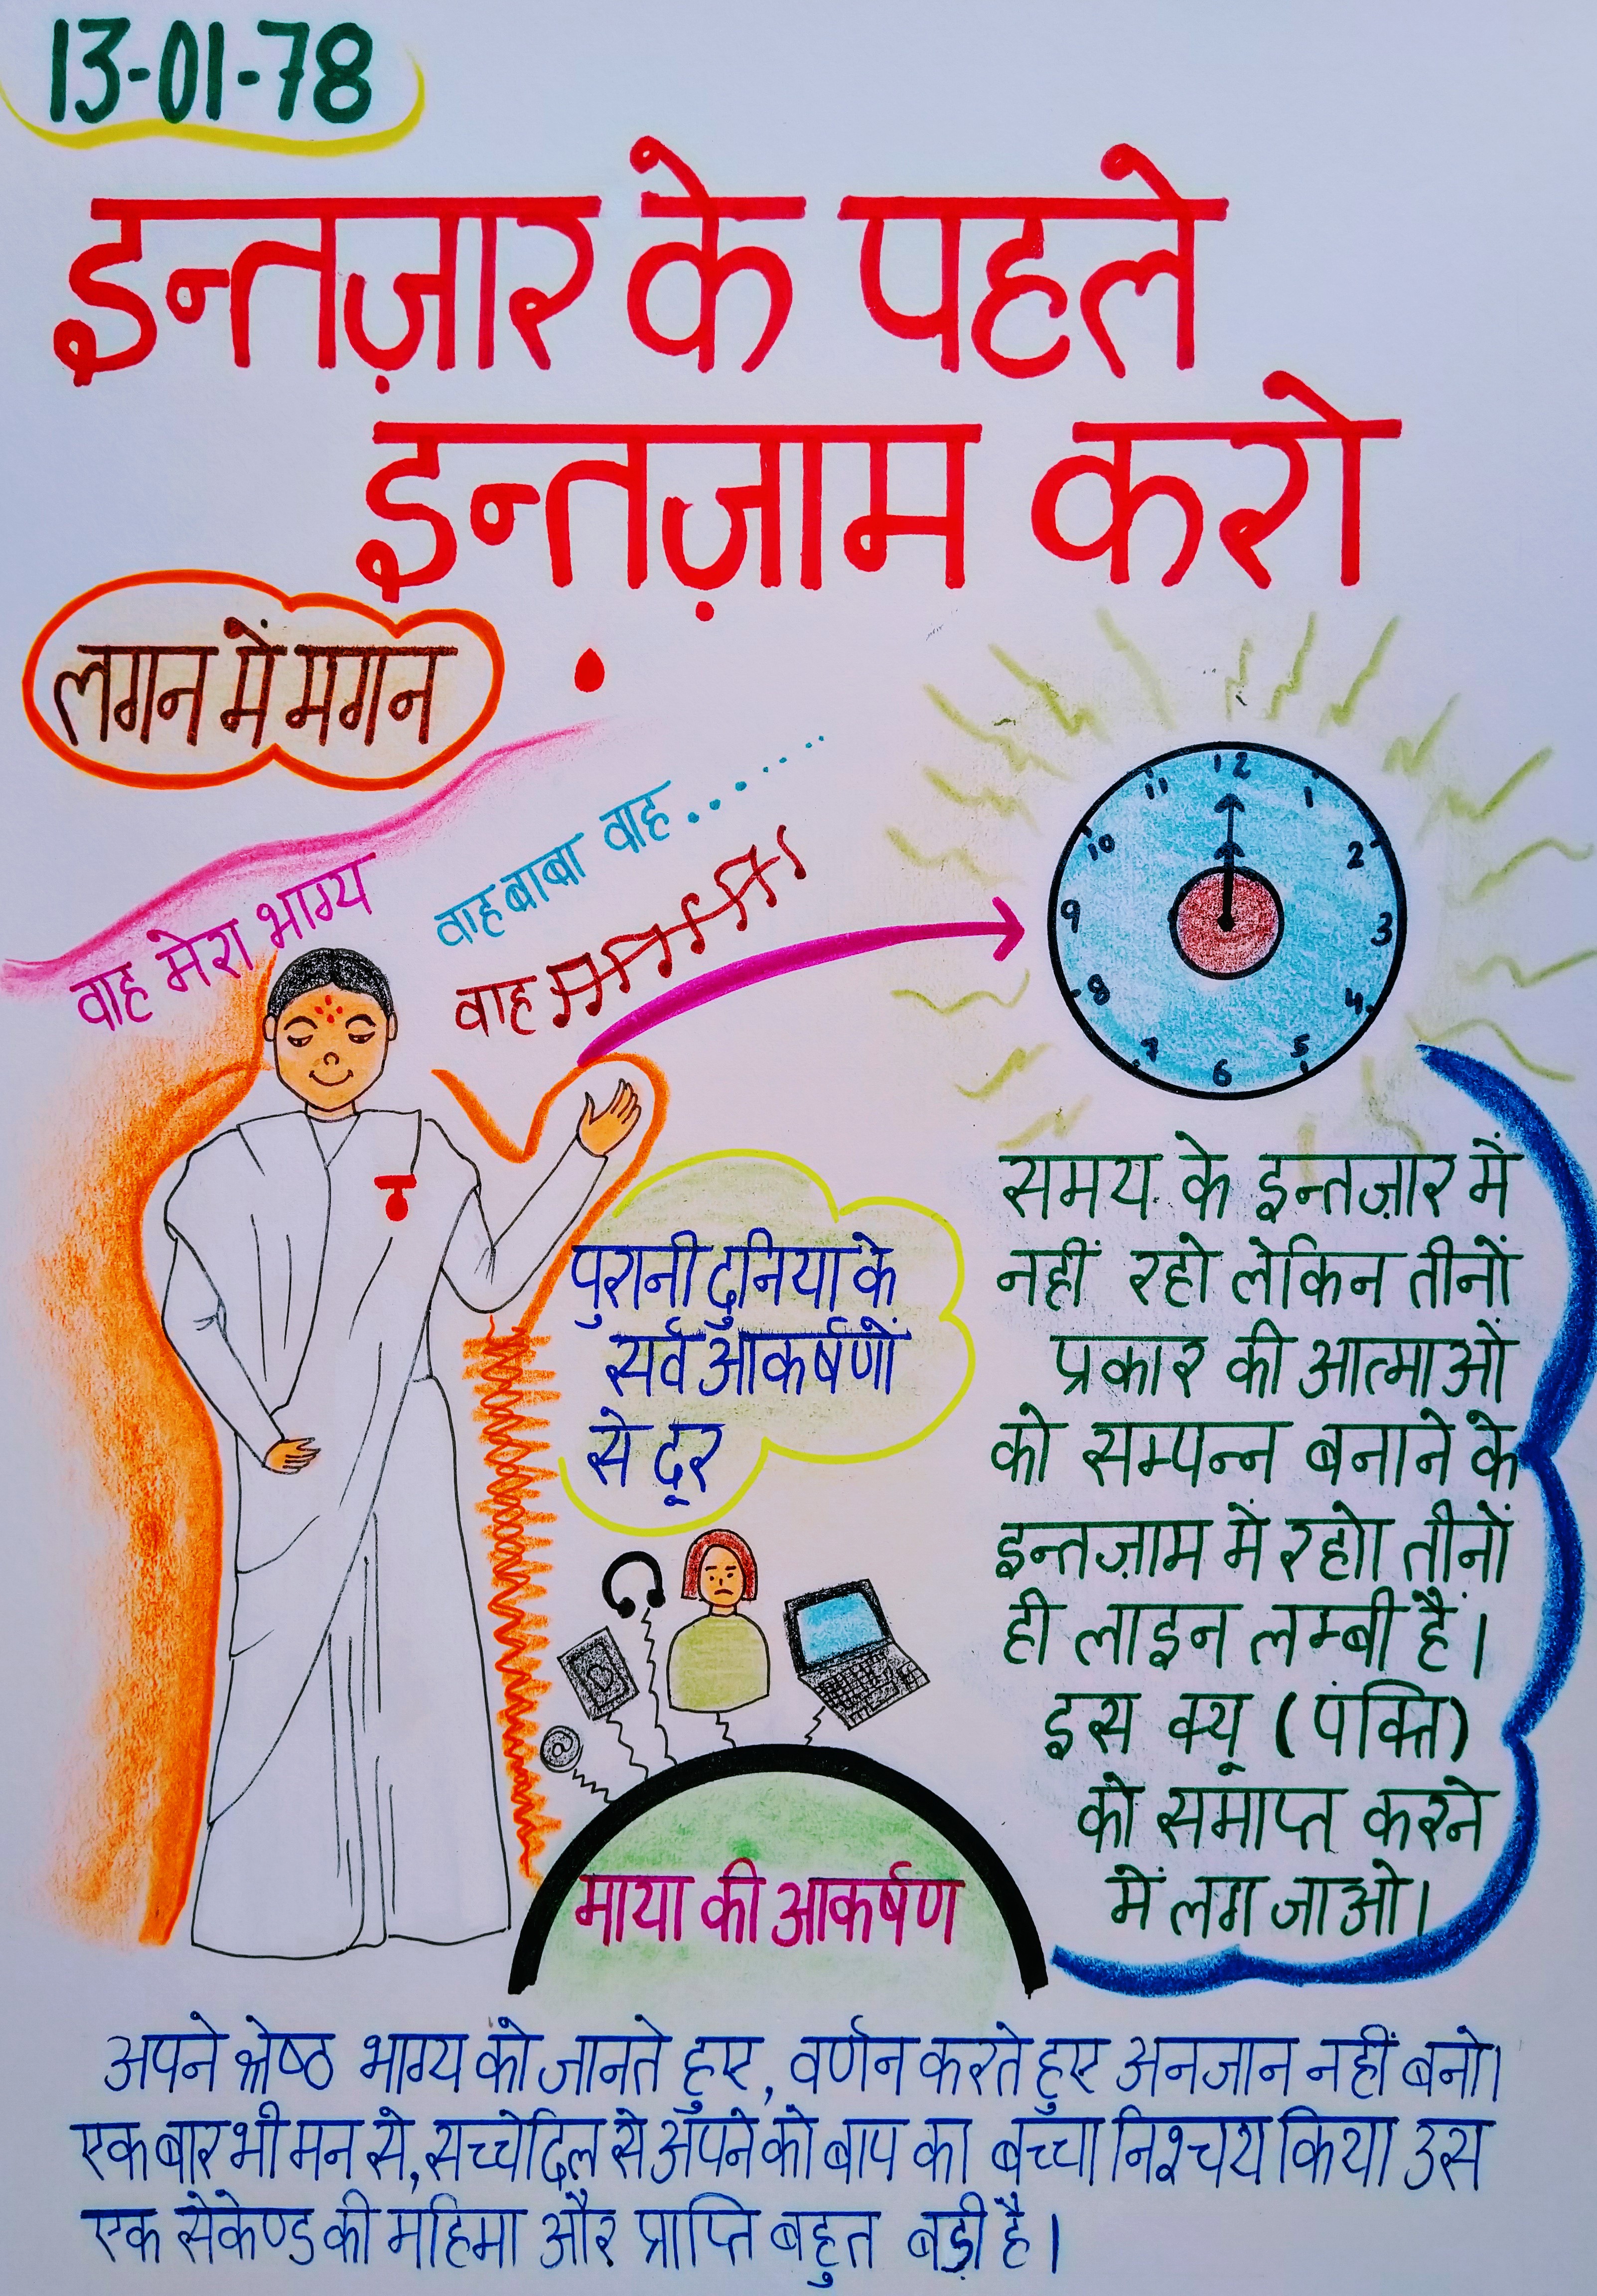 13-01-78
इन्तज़ार के पहले
इन्तज़ाम करो
लगन में मगन
वाह मेरा भाग्य
वाह बाबा वाह........
वाह
12
1
2
3
4
5
6
7
8
9
10
11
पुरानी दुनिया के
सर्व आकर्षणों
से दूर
समय के इन्तज़ार में
नहीं रहो लेकिन तीनों
प्रकार की आत्माओं
को सम्पन्न बनाने के
इन्तज़ाम में रहो। तीनों
ही लाइन लम्बी हैं।
इस क्यू (पंक्ति)
को समाप्त करने
में लग जाओ।
@
माया की आकर्षण
अपने श्रेष्ठ भाग्य को जानते हुए, वर्णन करते हुए अनजान नहीं बनो।
एक बार भी मन से, सच्चे दिल से अपने को बाप का बच्चा निश्चय किया उस
एक सेकेण्ड की महिमा और प्राप्ति बहुत बड़ी है।